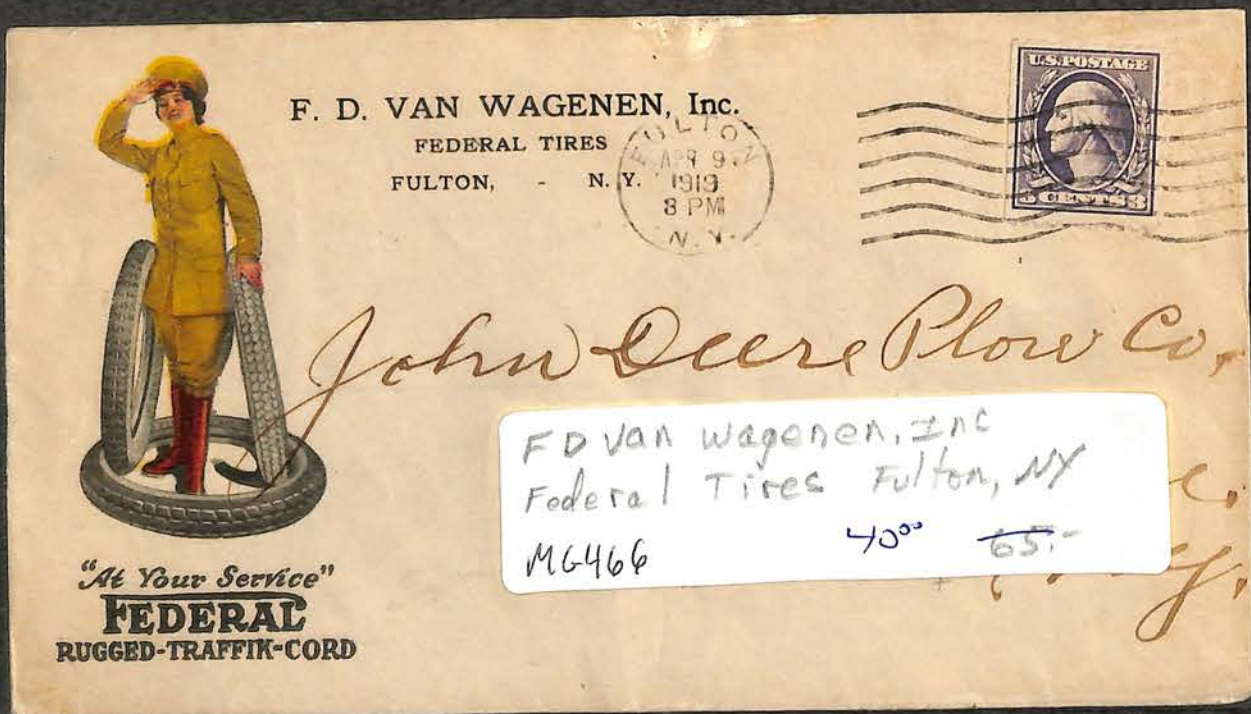 F. D. VAN WAGENEN, Inc.
FEDERAL TIRES
FULTON, - N. Y.
FULTON
APR 9
1919
8 PM
N. Y.
U.S. POSTAGE
3 CENTS 3
John Deere Plow Co,
FD Van Wagenen, Inc
Federal Tires Fulton, NY
MG466 40⁰⁰ 65.-
"At Your Service"
FEDERAL
RUGGED-TRAFFIK-CORD